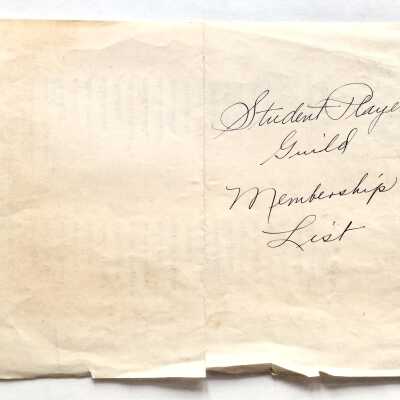 Student Playe
Guild
Membership
List